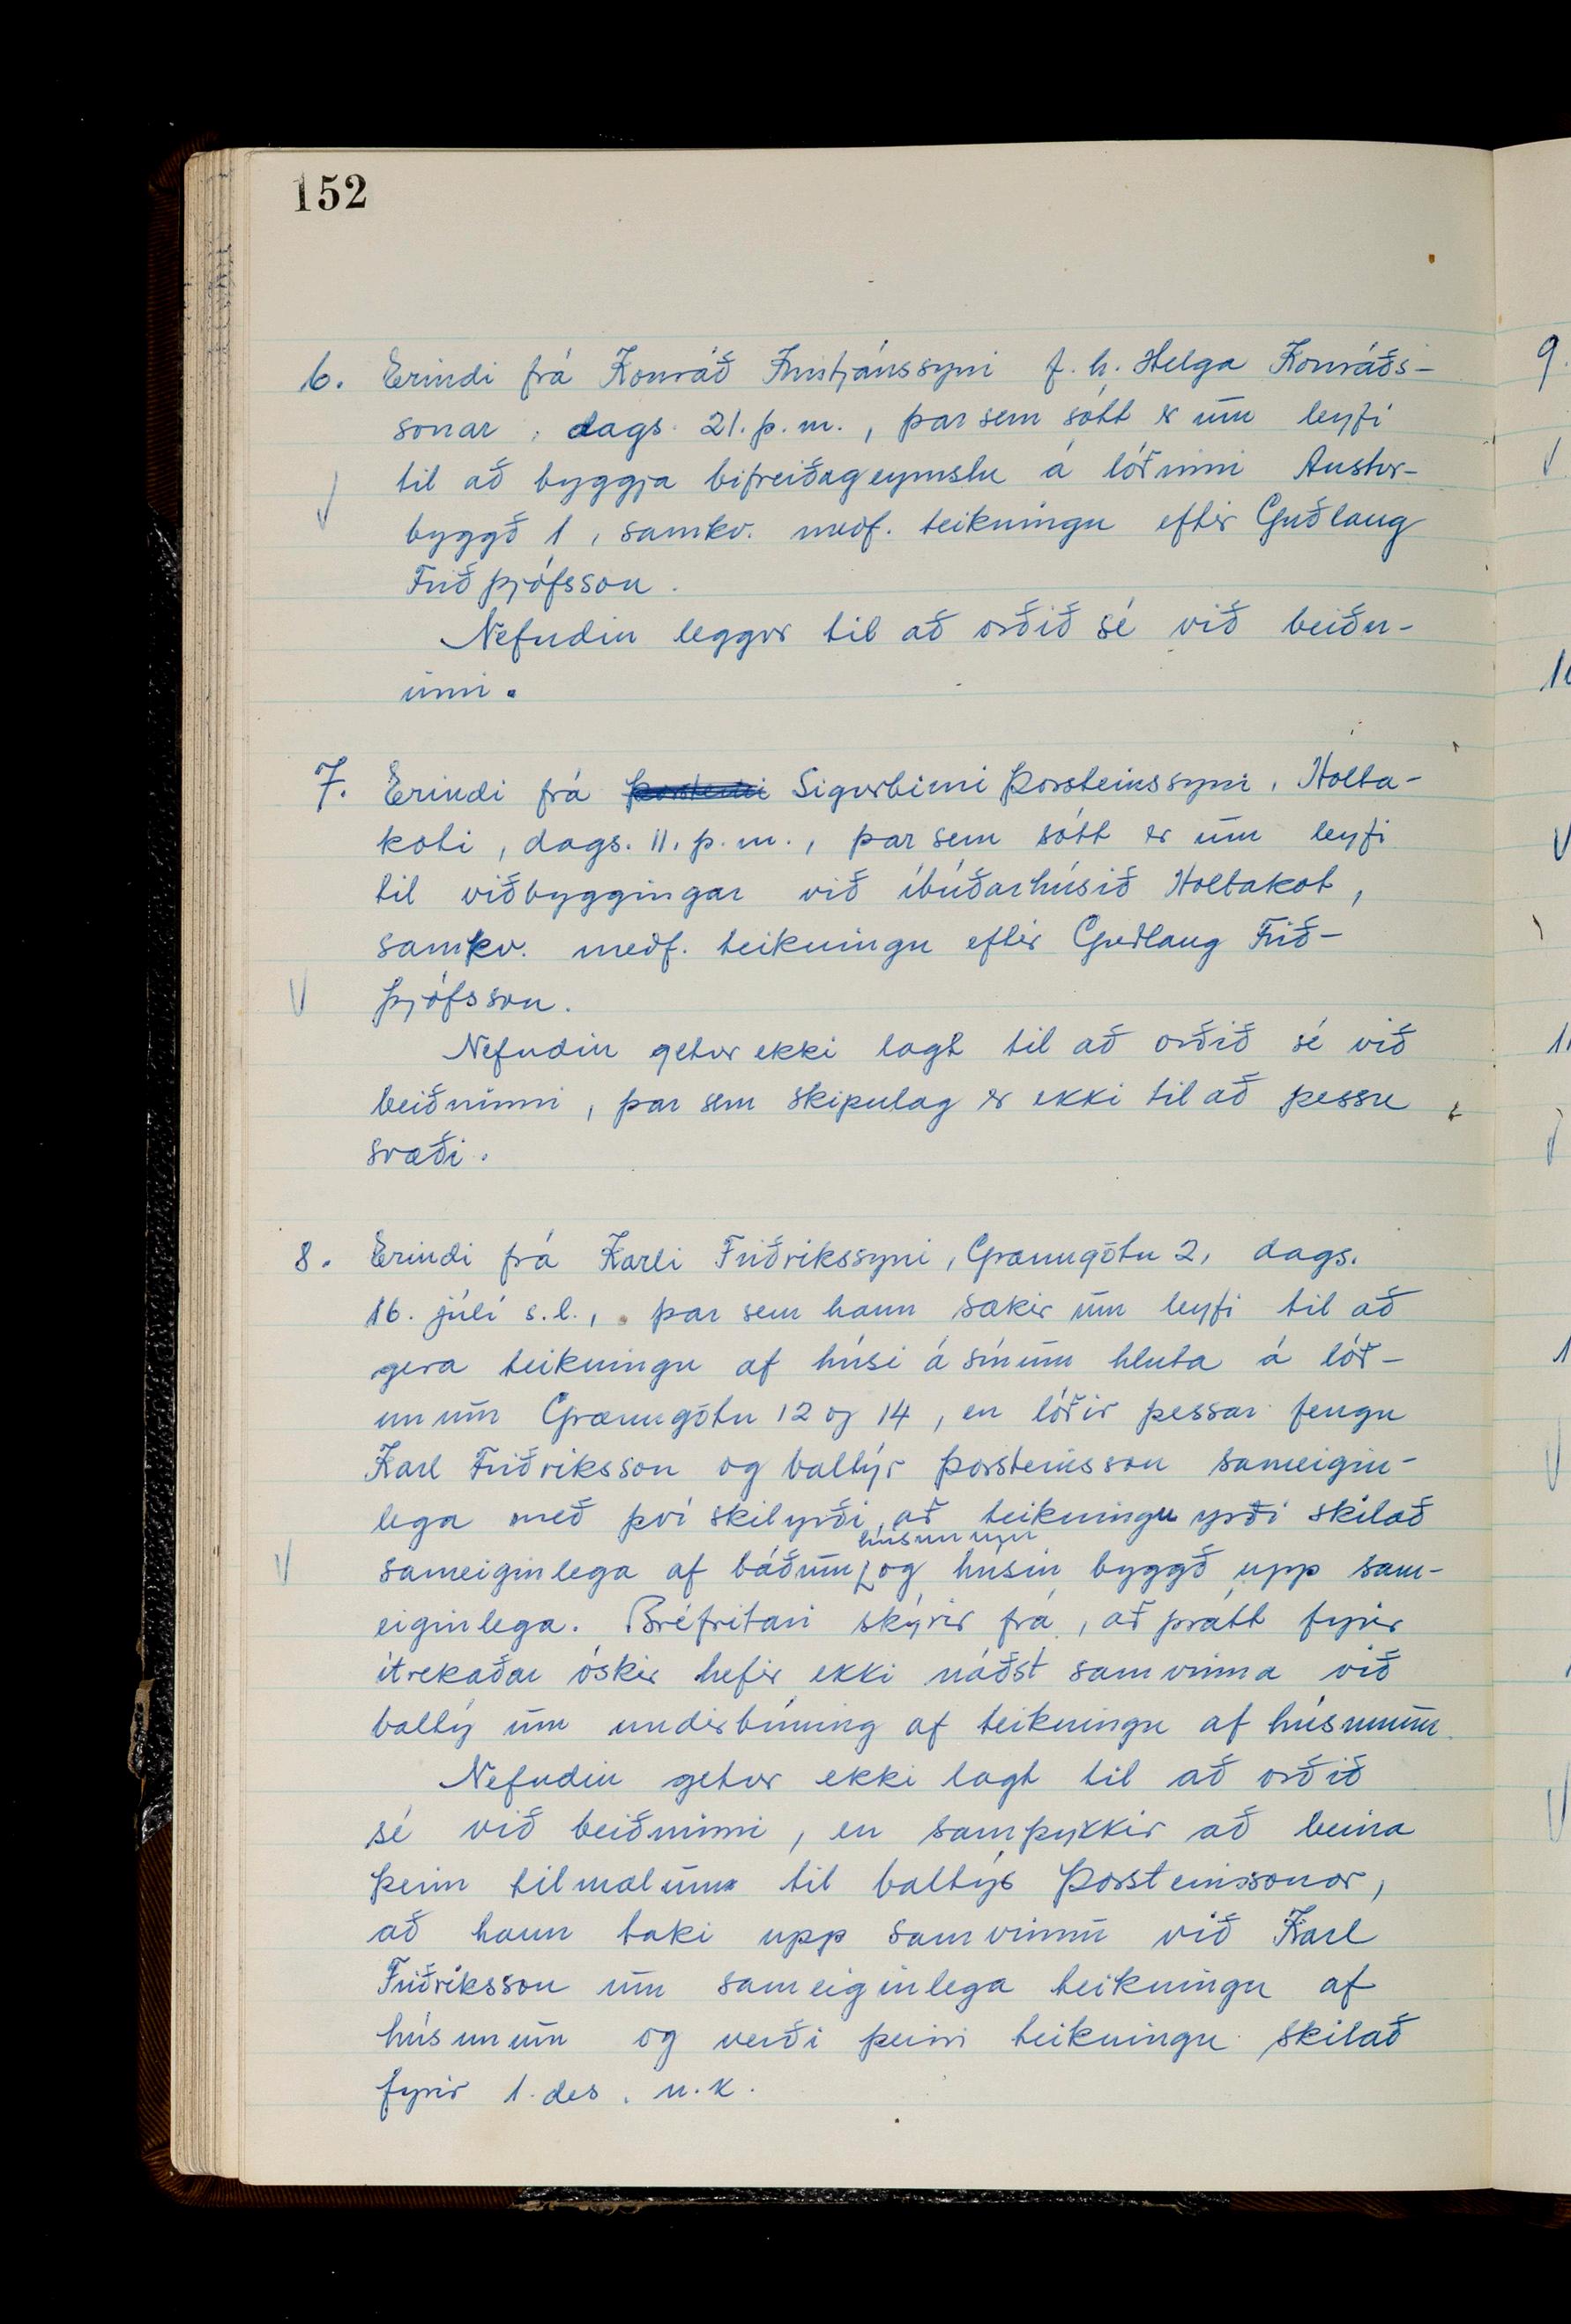 152
6. Erindi frá Konráð Kristjánssyni f. h. Helga Konráðs-
sonar, dags. 21. þ. m., þar sem sótt er um leyfi
til að byggja bifreiðageymslu á lóðinni Austur-
byggð 1, samkv. meðf. teikningu eftir Guðlaug
Friðþjófsson.
Nefndin leggur til að orðið sé við beiðn-
inni.
7. Erindi frá Þorsteini Sigurbirni Þorsteinssyni, Holta-
koti, dags. 11. þ. m., þar sem sótt er um leyfi
til viðbyggingar við íbúðarhúsið Holtakot,
samkv. meðf. teikningu eftir Guðlaug Frið-
þjófsson.
Nefndin getur ekki lagt til að orðið sé við
beiðninni, þar sem skipulag er ekki til að þessu
svæði.
8. Erindi frá Karli Friðrikssyni, Grænugötu 2, dags.
16. júlí s.l., þar sem hann sækir um leyfi til að
gera teikningu af húsi á sínum hluta á lóð-
unum Grænugötu 12 og 14, en lóðir þessar fengu
Karl Friðriksson og Valtýr Þorsteinsson sameigin-
lega með því skilyrði, að teikningu yrði skilað
húsunum
sameiginlega af báðum og húsin byggð upp sam-
eiginlega. Bréfritari skýrir frá, að þrátt fyrir
ítrekaðar óskir hefir ekki náðst samvinna við
Valtý um undirbúning af teikningu af húsunum.
Nefndin getur ekki lagt til að orðið
sé við beiðninni, en samþykkir að beina
þeim tilmælum til Valtýs Þorsteinssonar,
að hann taki upp samvinnu við Karl
Friðriksson um sameiginlega teikningu af
húsunum og verði þeirri teikningu skilað
fyrir 1. des. n.k.
9.